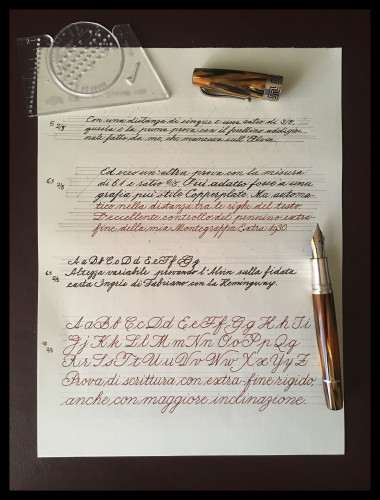 5 2/3 Con una distanza di cinque e una ratio di 3/2,
questa è la prima prova con il forellino addizio-
nale fatto da me, che mancava sull'Alvin.
6.1 2/3 Ed ecco un'altra prova con la misura
di 6.1 e ratio Più adatto forse a una
grafia più stile Copperplate. Ma automa-
tico nella distanza tra le righe del testo.
L'eccellente controllo del pennino extra-
fine della mia Montegrappa Extra 1930.
Aa Bb Cc Dd Ee Ff Gg
Altezza variabile provando l'Alvin sulla fidata
carta Ingres di Fabriano con la Hemingway.
Aa Bb Cc Dd Ee Ff Gg Hh Ii
Jj Kk Ll Mm Nn Oo Pp Qq
Rr Ss Tt Uu Vv Ww Xx Yy Z
Prova di scrittura con extra-fine rigido,
anche con maggiore inclinazione.